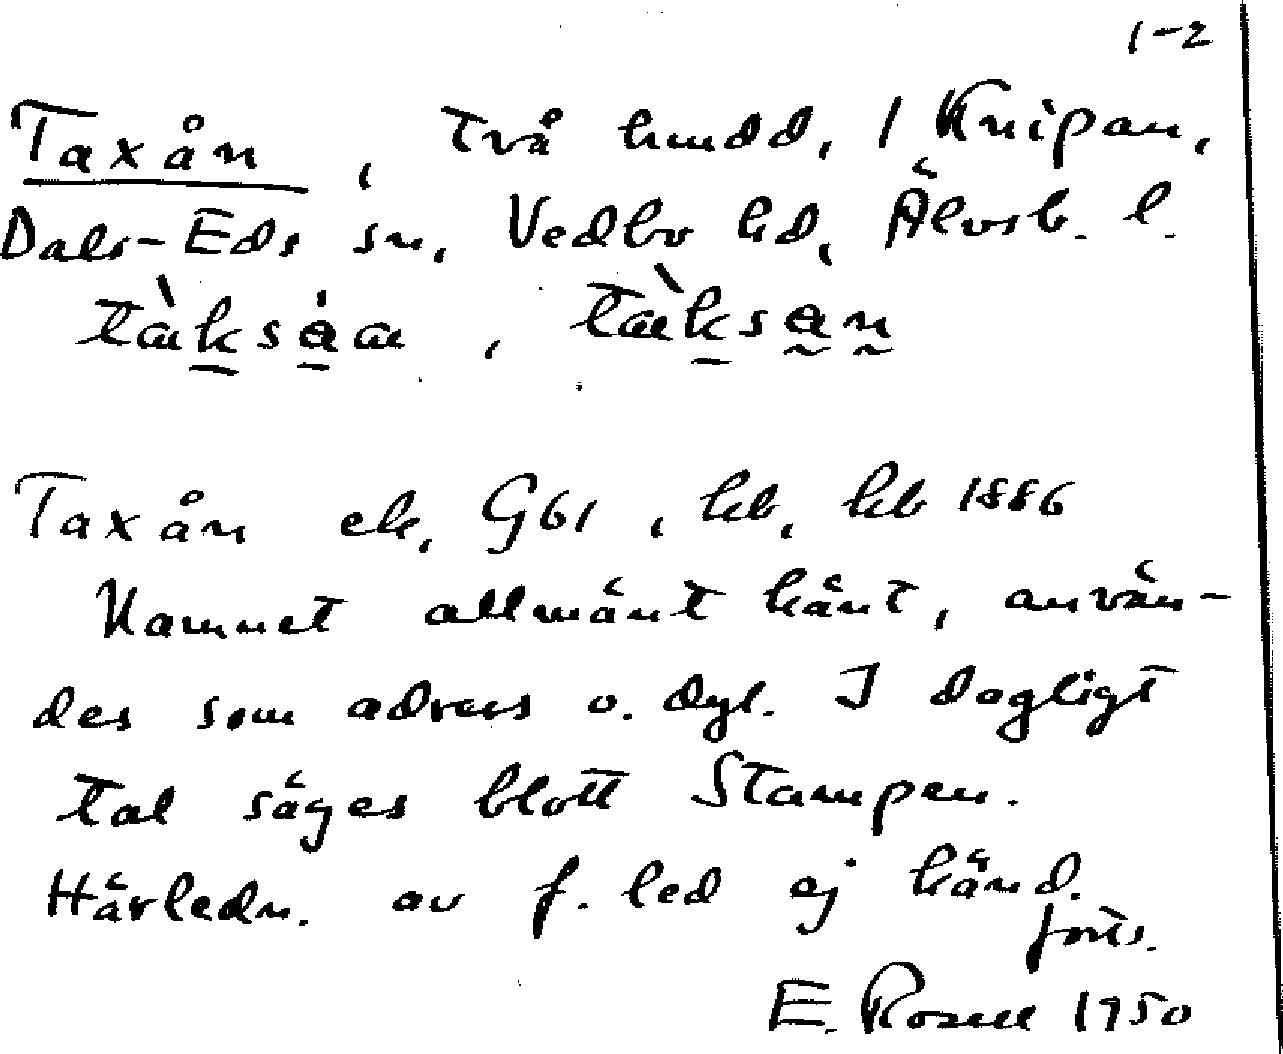 1-2
Taxån, två hmdd, 1 Knipan,
Dals-Eds sn, Vedbo hd, Älvsb. l.
tàksåa, tàksan
Taxån ek, G61, kb, kb 1886
Namnet allmänt känt, använ-
des som adress o. dyl. I dagligt
tal säges blott Stampen.
Härledn. av f. led ej känd.
forts.
E. Rosell 1950